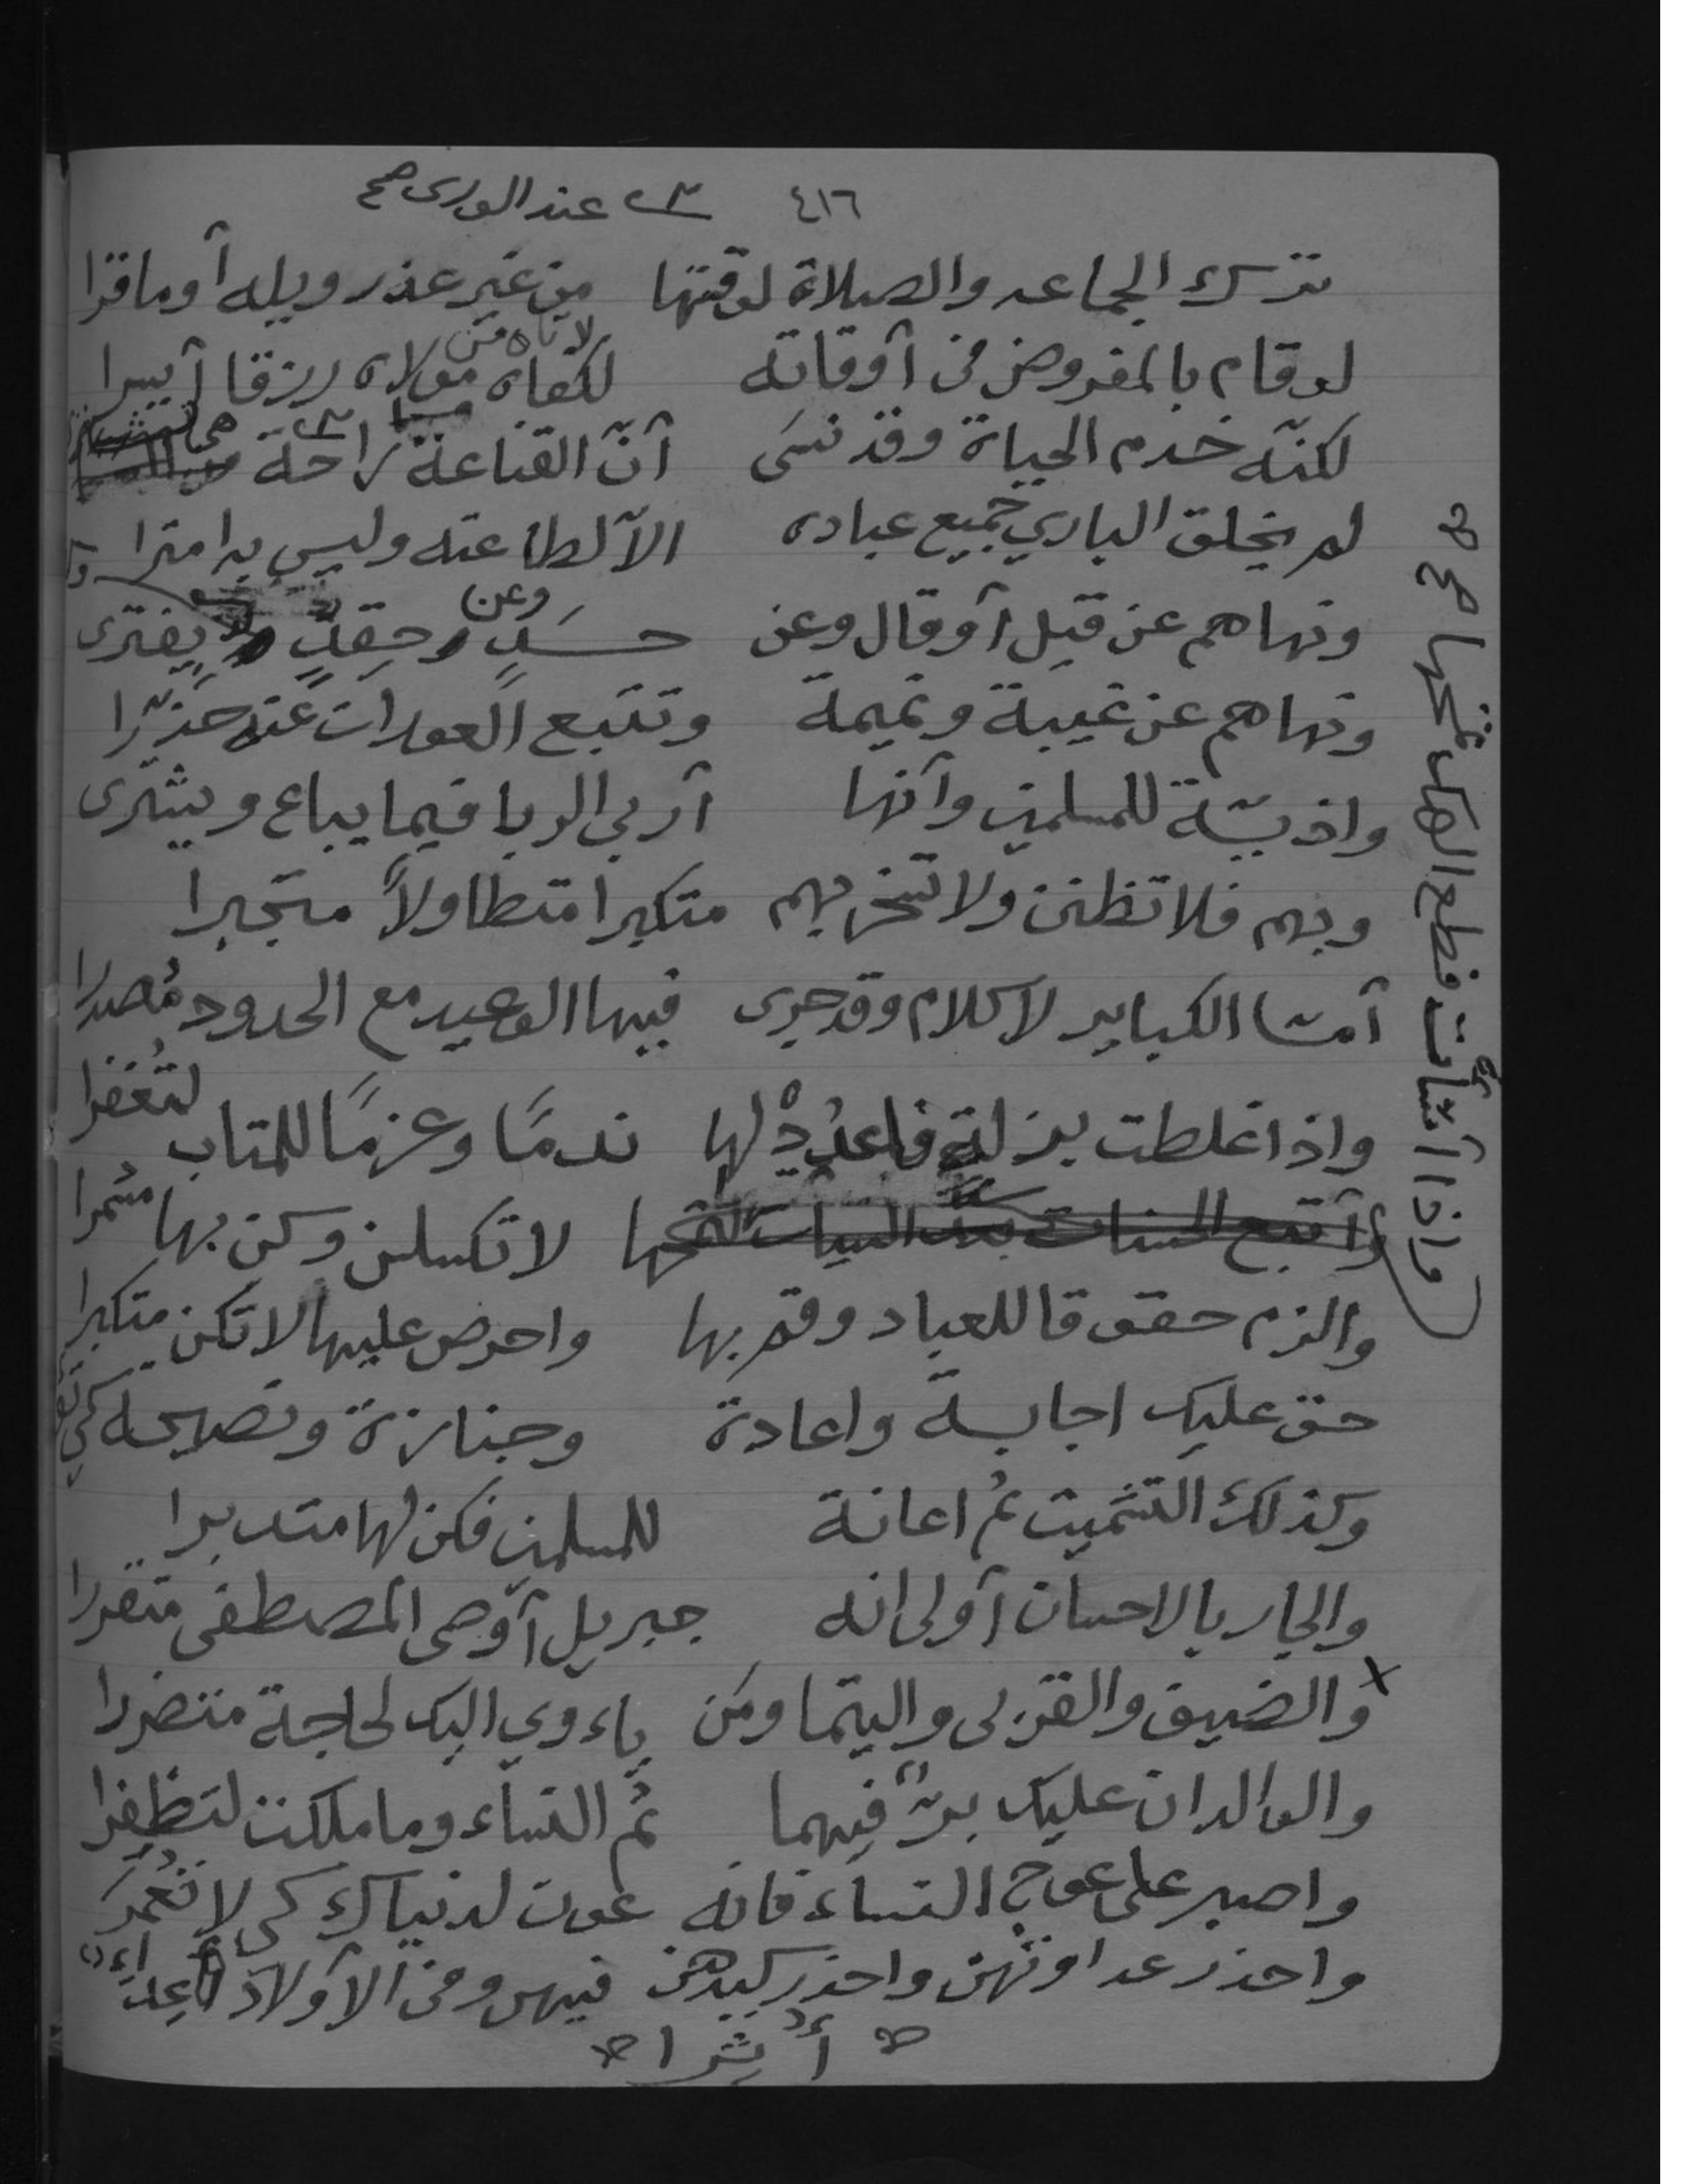 ٤١٦ عند الورى صح
ترك الجماعه والصلاة لوقتها من غير عذر ويله أو ما قرا
لاتاه من
لو قام بالمفروض في أوقاته لكفاه مولاه رزقا أيسرا
لكنّه خدم الحياة وقد نسى أنّ القناعة راحة
لم يخلق الباري جميع عباده الآ لطاعته وليس به امترا
ونهاهم عن قيل أو قال وعن حسدٍ وعن حقدٍ يفترى
ونهاهم عن غيبة ونميمة وتتبع العورات عنه حذّرا
واذيّة للمسلمين وآنها أربى الربا فيما يباع ويشترى
وبهم فلا تظنن ولا تسخر بهم متكبرا متطاولاً متجبرا
أمّا الكباير لا كلام وقد جرى فيها الوعيد مع الحدود مُصدرا
واذا غلطت بزلة فاعدُدْ لها ندمًا وعزمًا للمتاب لتُغفرا
وأتبع الحسنات بعد السيات لا تكسلن وكن بها مشمرا
واذا أسأت فطع الهك تمحها صح
والزم حقوقا للعباد وقم بها واحرص عليها لا تكن متكبرا
حق عليك اجابة واعادة وجنازة ونصيحه كي
وكذلك التشميت ثم اعانة للمسلمين فكن لها متدبرا
والجار بالاحسان أولى انه جبريل أوصى المصطفى متقررا
والضيف والقربى واليتما ومن ياءوي اليك لحاجة متضررا
والوالدان عليك برّ فيهما ثم النساء وما ملكت لتظفرا
واصبر على عوج النساء فانه عون لدنياك كي لا
واحذر عداوتهن واحذر كيدهن فيهن وفي الأولاد أعداءٌ
أُثِرا